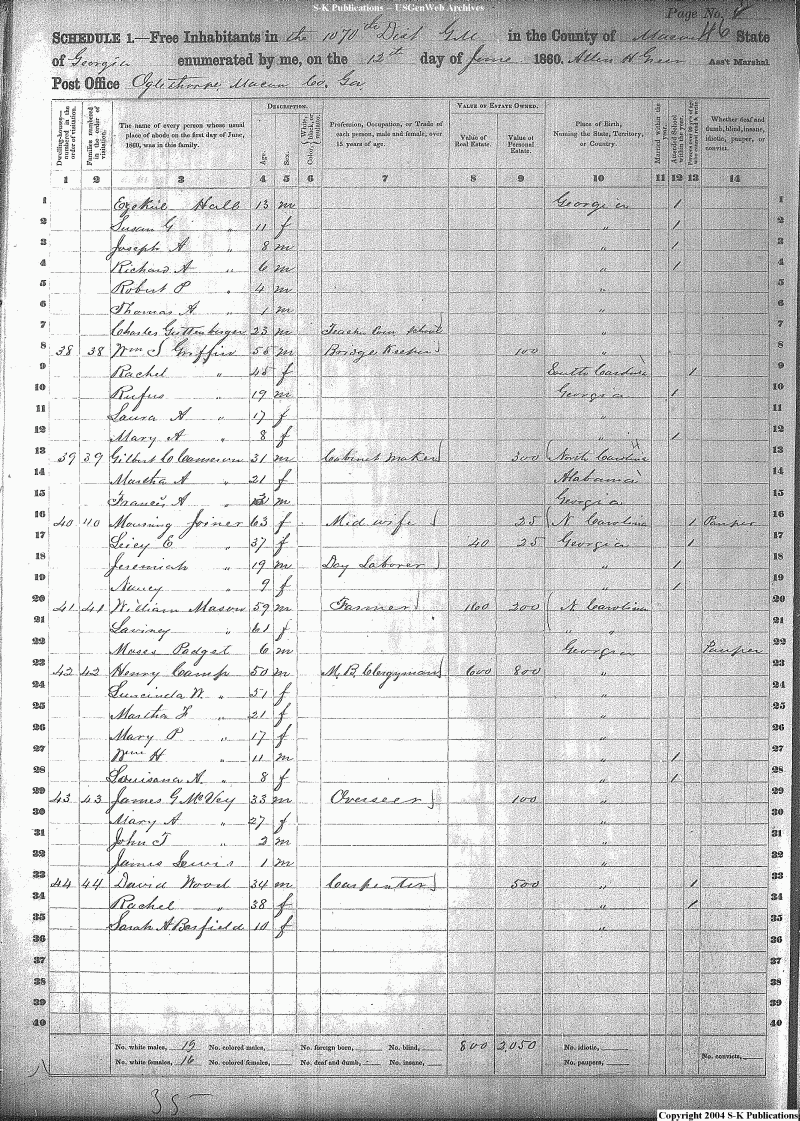 S-K Publications – USGenWeb Archives
Page No. 4
46
SCHEDULE 1.—Free Inhabitants in the 1070th Dist G.M. in the County of Macon State
of Georgia enumerated by me, on the 12th day of June 1860. Allen H Greer Ass't Marshal
Post Office Oglethorpe Macon Co. Ga
Dwelling-houses—numbered in the order of visitation. Families numbered in the order of visitation. The name of every person whose usual place of abode on the first day of June, 1860, was in this family. DESCRIPTION. Age. Sex. Color, White, black, or mulatto. Profession, Occupation, or Trade of each person, male and female, over 15 years of age. VALUE OF ESTATE OWNED. Value of Real Estate. Value of Personal Estate. Place of Birth, Naming the State, Territory, or Country. Married within the year. Attended School within the year. Whether deaf and dumb, blind, insane, idiotic, pauper, or convict.
1 2 3 4 5 6 7 8 9 10 11 12 13 14
1 Ezekiel Hall 13 m Georgia 1 1
2 Susan G " 11 f " 1 2
3 Joseph A " 8 m " 1 3
4 Richard A " 6 m " 1 4
5 Robert P " 4 m " 5
6 Thomas A " 1 m " 6
7 Charles Guttenberger 23 m Teach Com School " 7
8 38 38 Wm S Griffin 55 m Bridge Keeper 100 " 8
9 Rachel " 45 f South Carolina 1 9
10 Rufus " 19 m Georgia 1 10
11 Laura A " 17 f " 11
12 Mary A " 8 f " 1 12
13 39 39 Gilbert C Cameron 31 m Cabinet Maker 300 North Carolina 13
14 Martha A " 21 f Alabama 14
15 Francis A " m Georgia 15
16 40 40 Mourning Joiner 63 f Mid wife 25 N Carolina 1 Pauper 16
17 E " 37 f 40 25 Georgia 1 17
18 Jeremiah " 19 m Day Laborer " 1 18
19 Nancy " 9 f " 1 19
20 41 41 William Mason 59 m Farmer 160 200 N Carolina 20
21 Laviney " 61 f " " 21
22 Moses Padget 6 m Georgia Pauper 22
23 42 42 Henry Camp 50 m M. B. Clergyman 600 800 " 23
24 Luscinda W. " 51 f " 24
25 Martha F " 21 f " 25
26 Mary P " 17 f " 26
27 Wm H " 11 m " 1 27
28 Louisana A. " 8 f " 1 28
29 43 43 James G McVey 33 m Overseer 100 " 29
30 Mary A " 27 f " 30
31 John T " 2 m " 31
32 James Lewis 1 m " 32
33 44 44 David Wood 34 m Carpenter 500 " 1 33
34 Rachel " 38 f " 1 34
35 Sarah A Barfield 10 f " 35
36 36
37 37
38 38
39 39
40 40
No. white males, 19 No. colored males, No. foreign born, No. blind, 800 2,050 No. idiotic,
No. white females, 16 No. colored females, No. deaf and dumb, No. insane, No. paupers, No. convicts,
35
Copyright 2004 S-K Publications